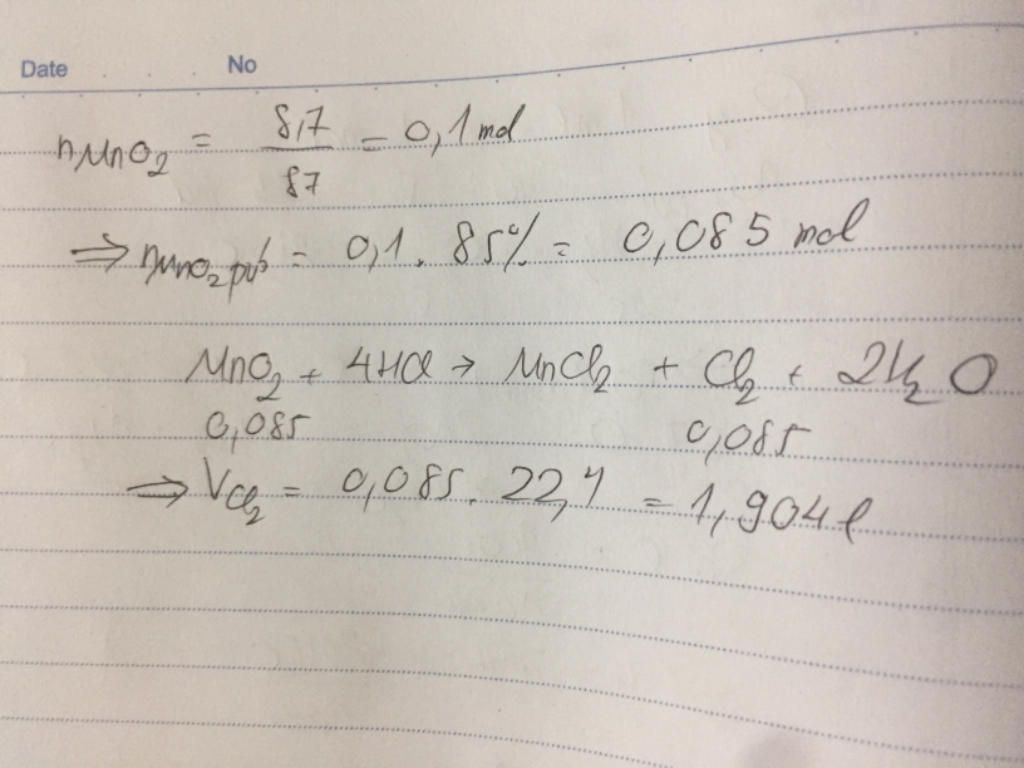 Date No
nMnO2 = 8,7/87 = 0,1 mol
⇒ nMnO2 pứ = 0,1 . 85% = 0,085 mol
MnO2 + 4HCl → MnCl2 + Cl2 + 2H2O
0,085 0,085
⇒ VCl2 = 0,085 . 22,4 = 1,904 l